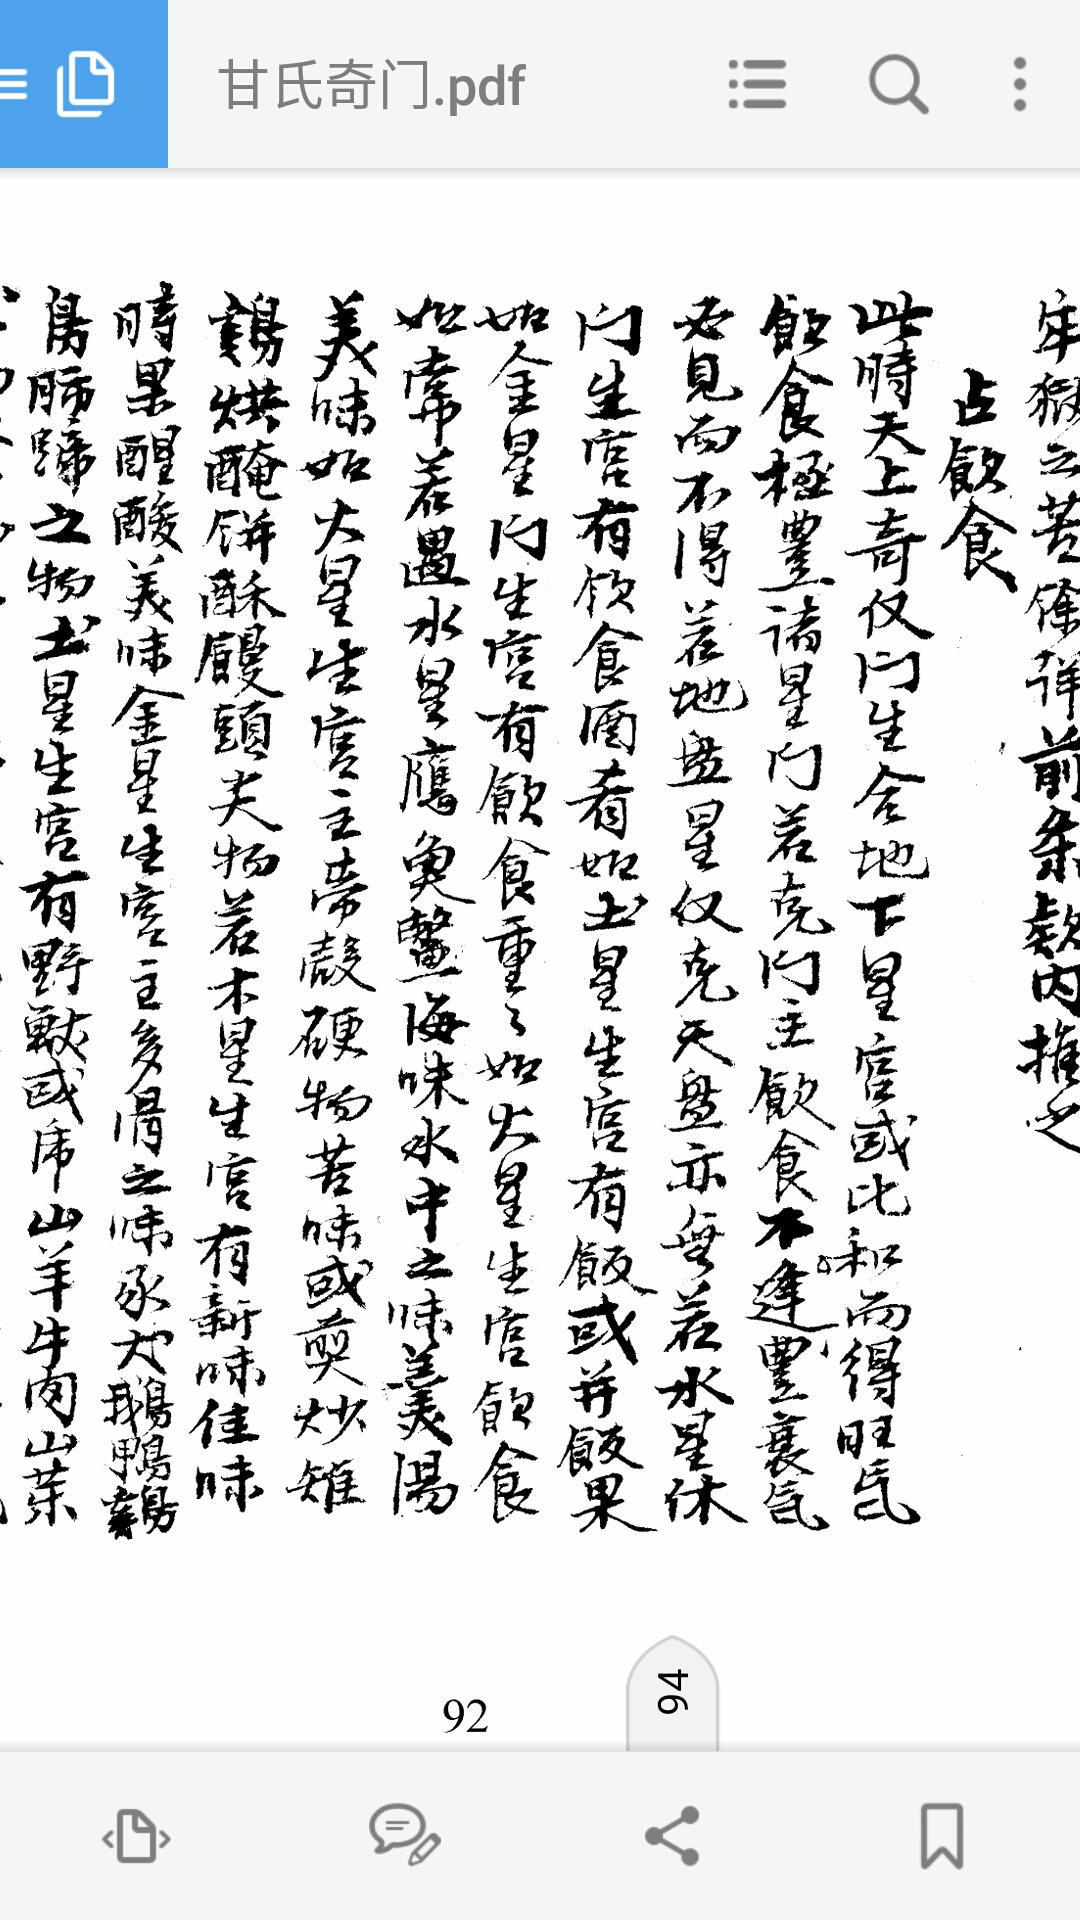 甘氏奇门.pdf
牢獄之苦餘詳前条款内推之
占飲食
此時天上奇仪门生合地下星宮或比和而得旺氏
飲食極豐諸星门若克门主飲食不逢豐衰氣
必見而不得若地盘星仪克天盘亦無若水星休
门生宮有飲食酒肴如土星生宮有飯或并飯果
如金星门生宮有飲食重々如火星生宮飲食
如常若遇水星鷹魚鱉海味水中之味美湯
美味如火星生宮主帶殼硬物苦味或煎炒雉
鷄烘醃餅酥饅頭类物若木星生宮有新味佳味
時果醒酸美味金星生宮主多骨之味豕犬鵝鴨鷄
蹄之物土星生宮有野獸或 山羊牛肉山菜
92
94